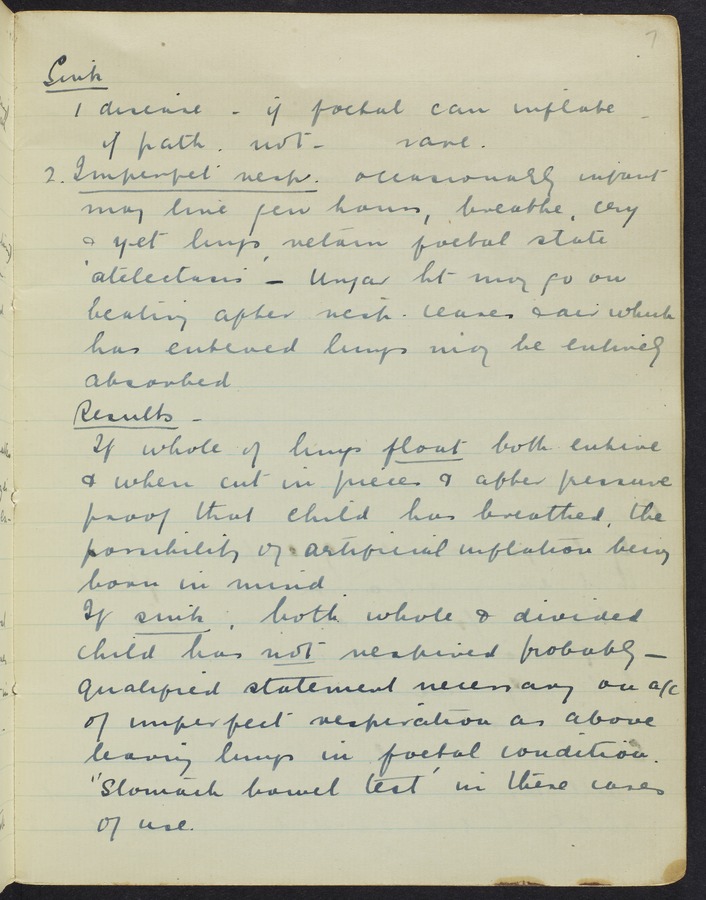 7
Sink
1 disease - if foetal can inflate -
if path. not - rare.
2. Imperfet resp. occasionally infant
may live few hours, breathe, cry
& yet lungs retain foetal state
'atelectasis' - ht may go on
beating after resp. ceases & air which
has entered lungs may be entirely
absorbed
Results -
If whole of lungs float both entire
& when cut in pieces & after pressure
proof that child has breathed, the
possibility of artificial inflation being
born in mind
If sink, both whole & divided
child has not respired probably -
qualified statement necessary on a/c
of imperfect respiration as above
leaving lungs in foetal condition.
"Stomach bowel test" in these cases
of use.